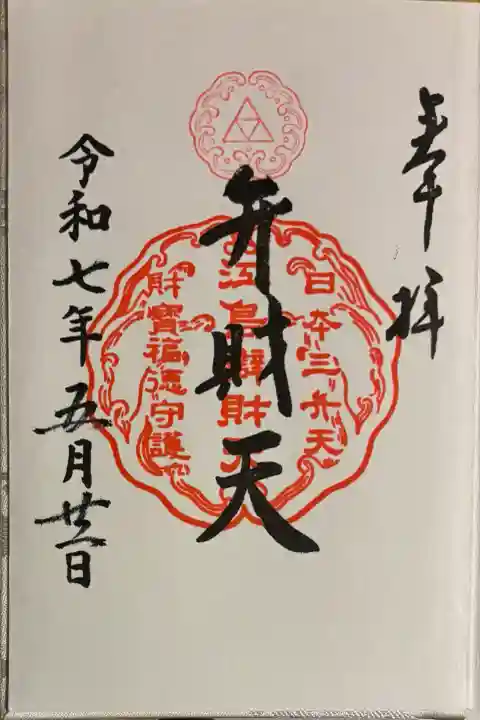 奉拝
日本三弁天
江島辨財天
財寳福徳守護
弁財天
令和七年五月廿一日